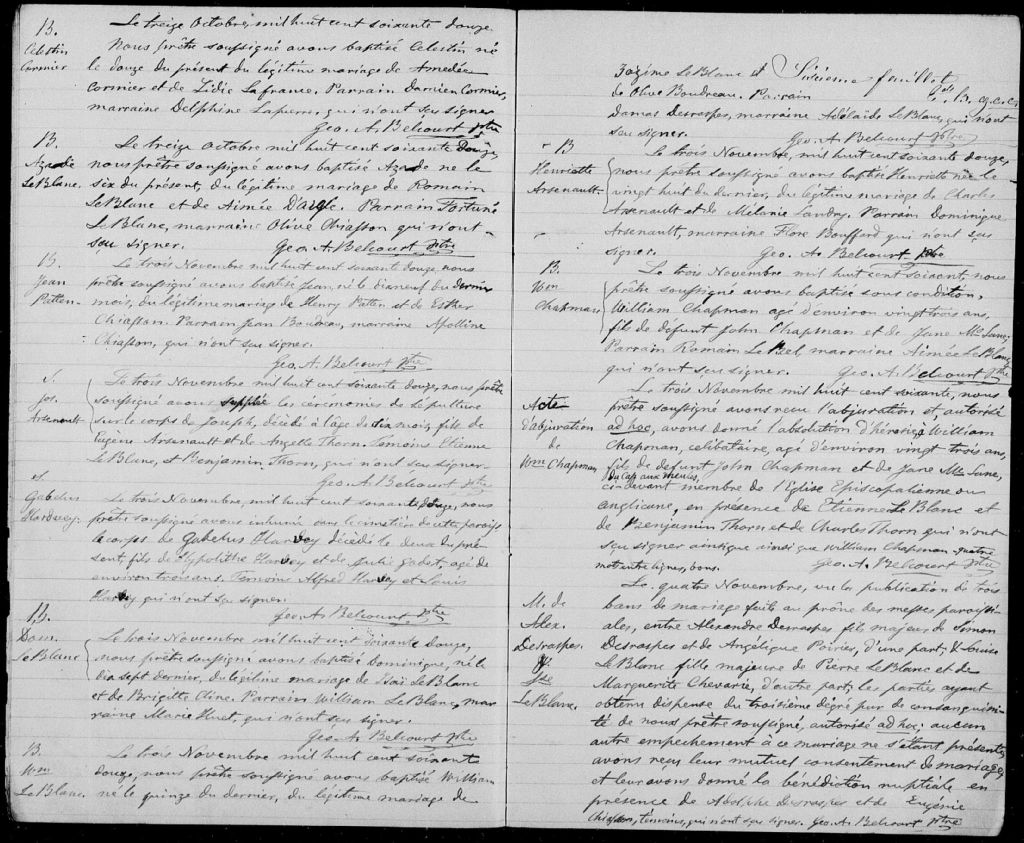 B.
Celestin
Cormier
Le treize Octobre, mil huit cent soixante douze
Nous prêtre soussigné avons baptisé Celestin né
le douze du présent du légitime mariage de Amedée
Cormier et de Lidie Lafrance. Parrain Damien Cormier,
marraine Delphine Lapierre, qui n'ont su signer
Geo. A. Belcourt ptre
B.
Azade
LeBlanc
Le treize Octobre mil huit cent soixante douze,
nous prêtre soussigné avons baptisé Azade né le
six du présent, du légitime mariage de Romain
LeBlanc et de Aimée D'aigle. Parrain Fortuné
LeBlanc, marraine Olive Chiasson qui n'ont
su signer. Geo. A. Belcourt ptre
B.
Jean
Patten
Le trois Novembre mil huit cent soixante douze, nous
prêtre soussigné avons baptisé Jean, né le dix neuf du dernier
mois, du légitime mariage de Henry Patten et de Esther
Chiasson. Parrain Jean Boudreau, marraine Apolline
Chiasson, qui n'ont su signer.
Geo. A. Belcourt ptre
S.
Jos.
Arsenault
Le trois Novembre mil huit cent soixante douze, nous prêtre
soussigné avons supplée les cérémonies de sépulture
sur le corps de Joseph, décédé à l'age de dix mois, fils de
Eugène Arsenault et de Angelle Thorn. Témoins Etienne
LeBlanc, et Benjamin Thorn, qui n'ont su signer
Geo. A. Belcourt ptre
S
Gabelus
Hardvey
Le trois Novembre, mil huit cent soixante douze, nous
prêtre soussigné avons inhumé dans le cimetière de cette paroisse
le corps de Gabelus Harvey décédé le deux du pré-
sent, fils de Hypolithe Harvey et de Julie Godet, agé de
environ trois ans. Temoins Alfred Harvey et Louis
Harvey qui n'ont su signer.
Geo. A. Belcourt ptre
B.
Dom.
LeBlanc
Le trois Novembre mil huit cent soixante douze,
nous prêtre soussigné avons baptisé Dominique, né le
dix sept dernier, du légitime mariage de Isaï LeBlanc
et de Brigitte Cline. Parrain William LeBlanc, mar
raine Marie Huet, qui n'ont su signer.
Geo. A. Belcourt ptre
B.
Wm
LeBlanc.
Le trois Novembre mil huit cent soixant
douze, nous prêtre soussigné avons baptisé William
né le quinze du dernier, du légitime mariage de
Sixieme feuillet
Zozime LeBlanc et
de Olive Boudreau. Parrain
Damas Desraspes, marraine Adélaïde LeBlanc, qui n'ont
su signer. Geo. A. Belcourt ptre
B
Henriette
Arsenault
Le trois Novembre, mil huit cent soixante douze,
nous prêtre soussigné avons baptisé Henriette née le
vingt huit du dernier, du légitime mariage de Charles
Arsenault et de Mélanie Landry. Parrain Dominique
Arsenault, marraine Flore Bouffard qui n'ont su
signer. Geo. A. Belcourt ptre
B.
Wm
Chapman
Le trois Novembre mil huit cent soixant, nous
prêtre soussigné avons baptisé sous condition,
William Chapman agé d'environ vingt trois ans,
fils de defunt John Chapman et de Jane McLane,
Parrain Romain LeBel, marraine Aimée LeBlanc
qui n'ont su signer. Geo. A. Belcourt ptre
Acte
d'abjuration
de
Wm Chapman
Le trois Novembre mil huit cent soixante, nous
prêtre soussigné avons reçu l'abjuration et, autorisé
ad hoc, avons donné l'absolution d'hérésie, à William
Chapman, celibataire, agé d'environ vingt trois ans,
fils de defunt John Chapman et de Jane McLane,
du Cap aux Meules,
ci-devant membre de l'Eglise Episcopalienne ou
anglicane, en présence de Etienne LeBlanc et
de Benjamin Thorn et de Charles Thorn qui n'ont
su signer ainsi que ainsi que William Chapman quatre
mots entre lignes, bons. Geo. A. Belcourt ptre
M. de
Alex.
Desraspes
&
Lse
LeBlanc.
Le quatre Novembre, vu la publication de trois
bans de mariage faite au prône des messes paroissi-
ales, entre Alexandre Desraspes fils majeur de Simon
Desraspes et de Angélique Poirier, d'une part, & Louise
LeBlanc fille majeure de Pierre LeBlanc et de
Marguerite Chevarie, d'autre part; les parties ayant
obtenu dispense du troisième degré pur de consanguini-
té de nous prêtre soussigné, autorisé ad hoc; aucun
autre empechement à ce mariage ne s'étant présenté,
avons reçu leur mutuel consentement de mariage,
et leur avons donné la bénédiction nuptiale en
présence de Adolphe Desraspes et de Eugénie
Chiasson, témoins, qui n'ont su signer. Geo. A. Belcourt ptre